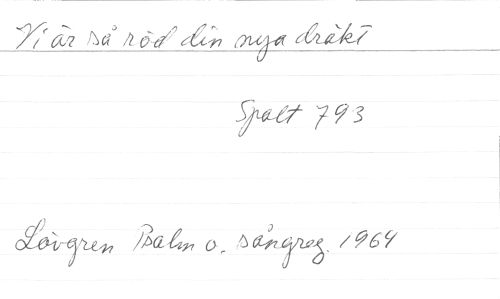 Vi är så röd din nya dräkt
Spalt 793
Lövgren Psalm o. sångreg. 1964